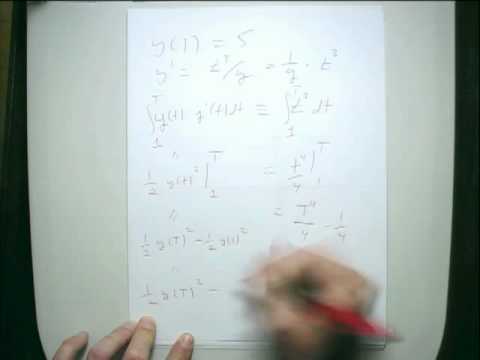 y(1) = 5
y' = t³/y = 1/y · t³
∫₁ᵀ y(t) y'(t) dt = ∫₁ᵀ t³ dt
"
1/2 y(t)² |₁ᵀ = t⁴/4 |₁ᵀ
" = T⁴/4 - 1/4
1/2 y(T)² - 1/2 y(1)²
"
1/2 y(T)² -